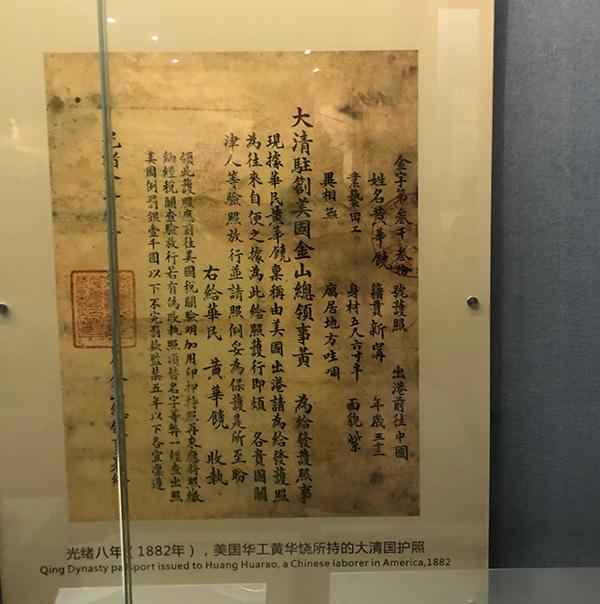 金字第叁千叁拾 號護照 出港前往中國
姓名黄華饒 籍貫新寧 年歲三十一
業藝田工 身材五尺六寸半 面貌紫
異相無 寓居地方哇
大清駐劄美國金山總領事黄 為給發護照事
現據華民黄華饒稟稱由美國出港請為給發護照
為往來自便之據為此給照護行即煩 各貴國關
津人等驗照放行並請照例妥為保護是所至盼
右給華民 黄華饒 收執
領此護照應前往美國稅關驗明加用印押持照再來應將照繳
納經稅關查驗放行若有偽改執照頂替名字等弊一經查出照
美國例罰銀壹千圓以下不完罰款監禁五年以下各宜凜遵
光緒
光绪八年(1882年)，美国华工黄华饶所持的大清国护照
Qing Dynasty passport issued to Huang Huarao, a Chinese laborer in America,1882